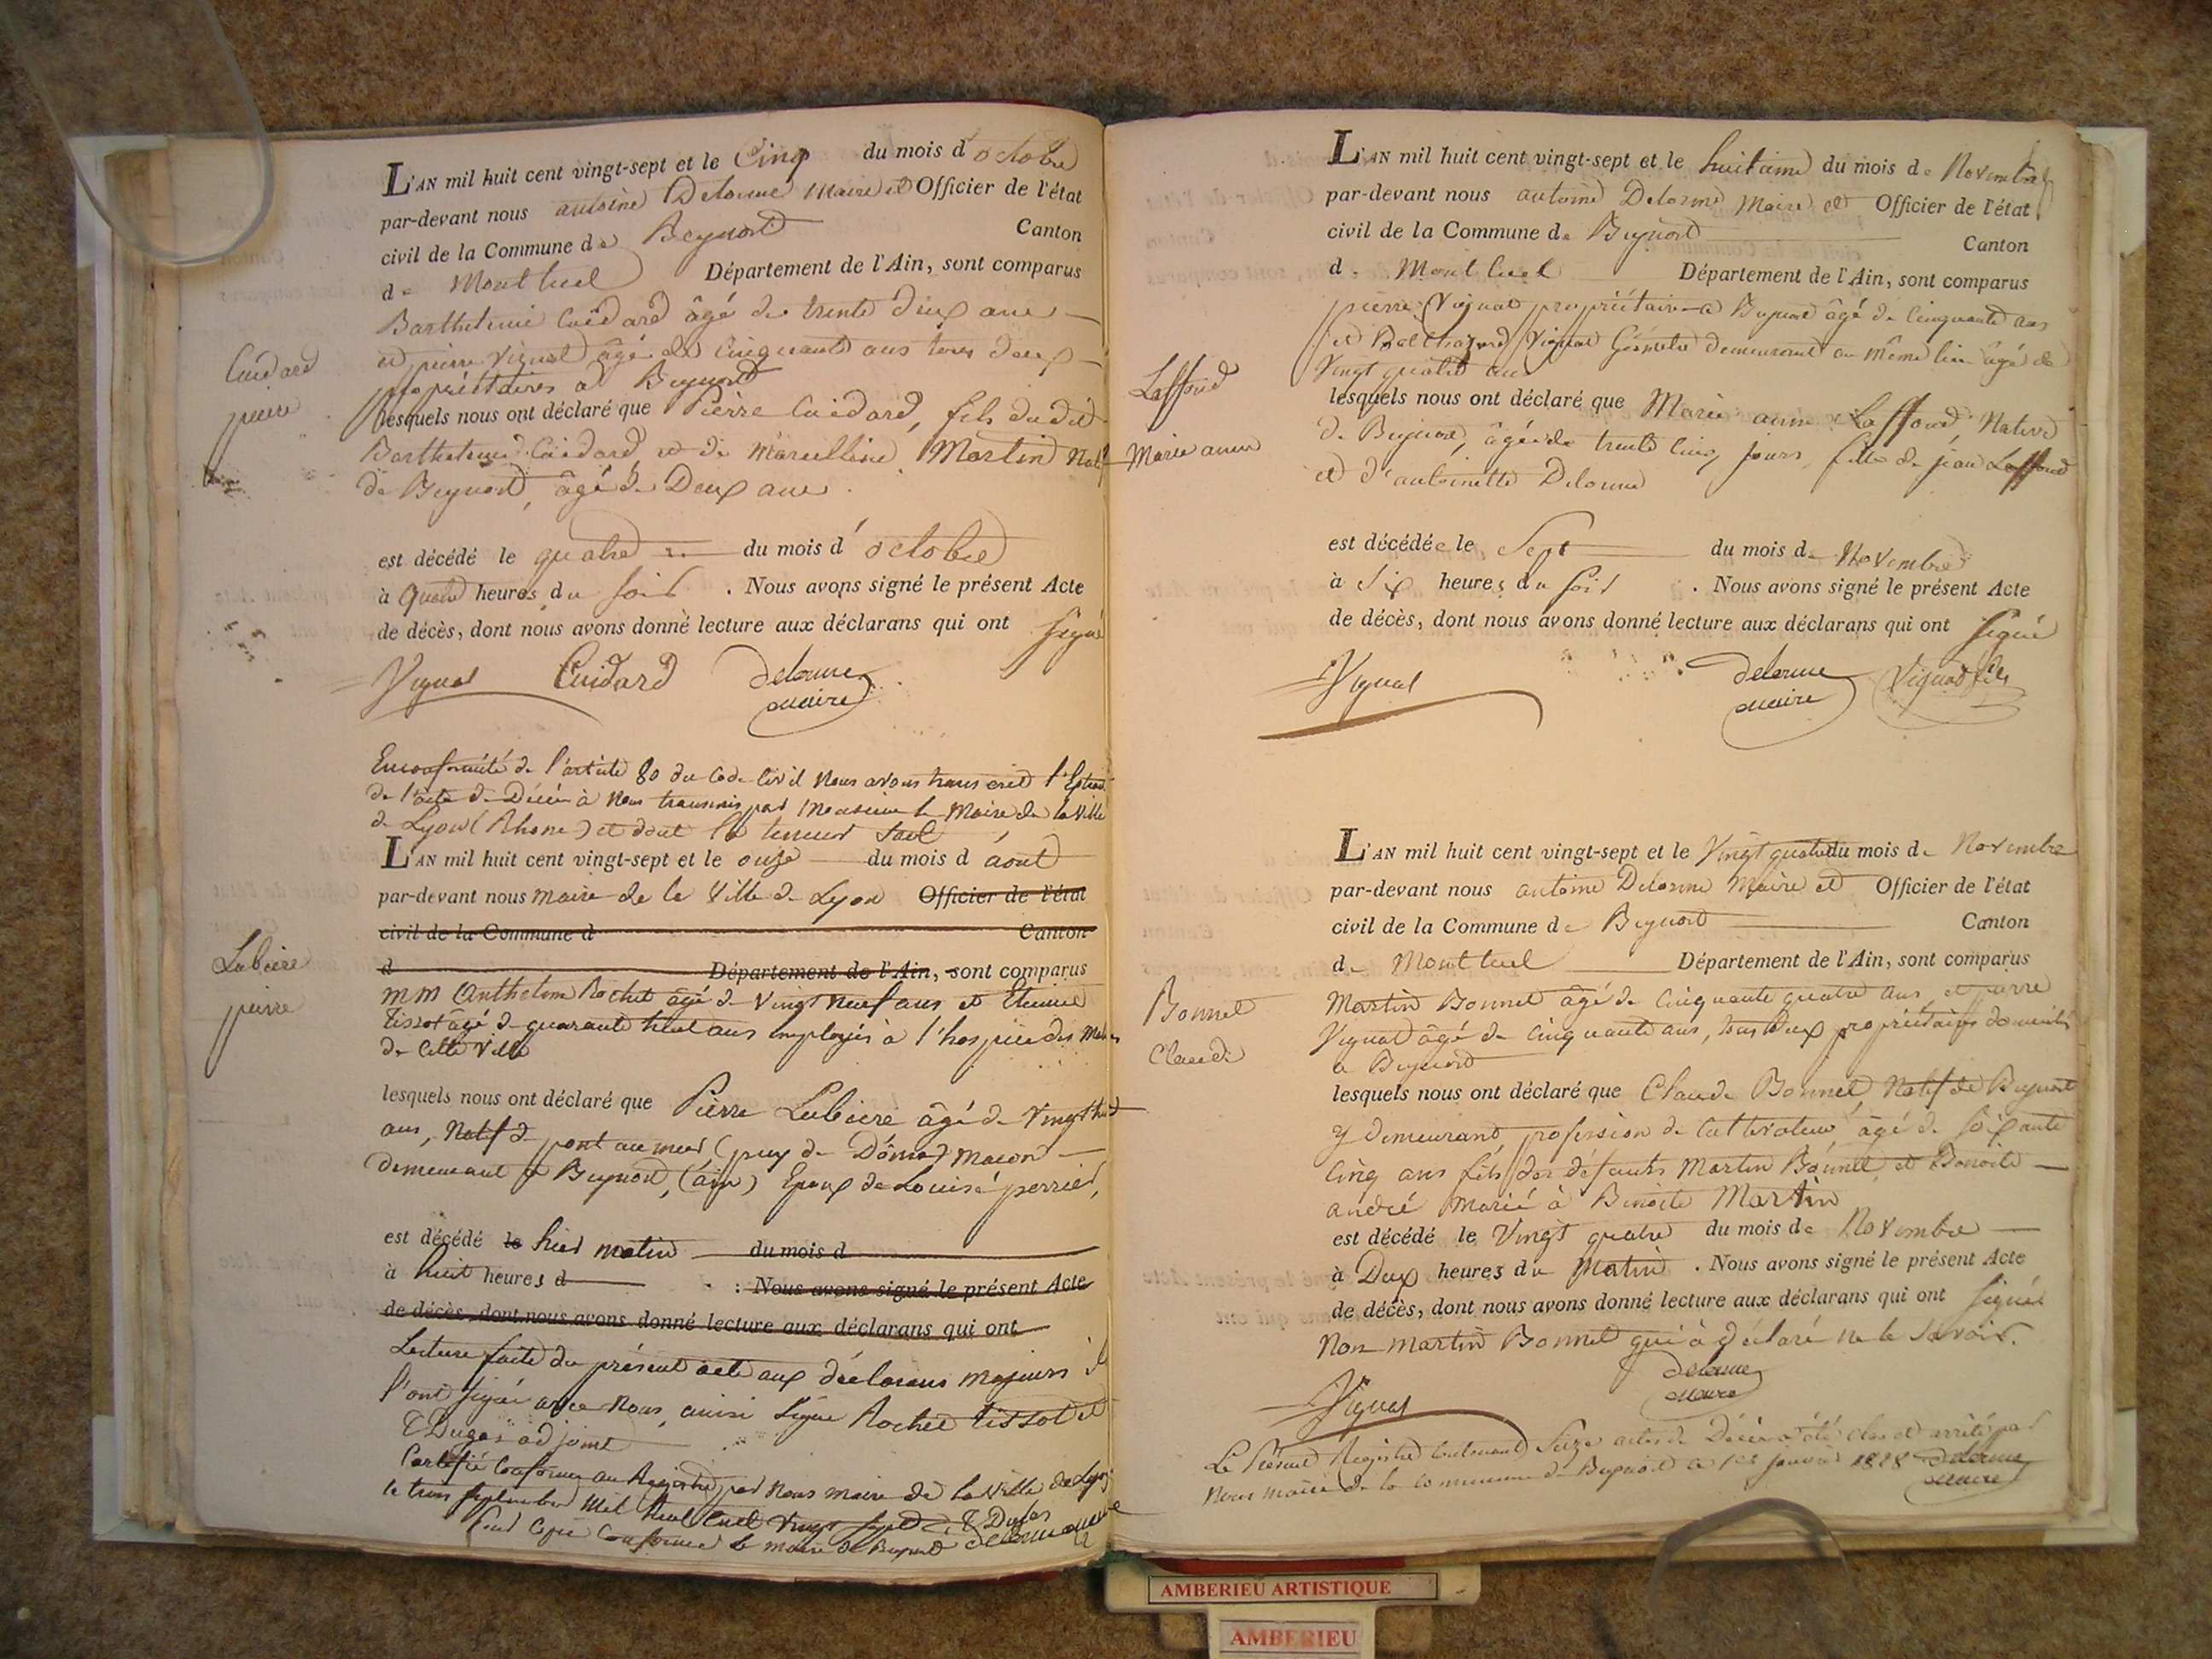 L'AN mil huit cent vingt-sept et le Cinq du mois d'octobre
par-devant nous antoine Delorme Maire et Officier de l'état
civil de la Commune de Beynost Canton
de Montluel Département de l'Ain, sont comparus
Barthelemi Cuidard âgé de trente deux ans
et pierre Vignat âgé de Cinquante ans tous deux
propriétaires a Beynost
Cuidard
pierre
lesquels nous ont déclaré que Pierre Cuidard, fils dudit
Barthelemi Cuidard et de Marcelline Martin Natif
de Beynost, âgé de Deux ans
est décédé le quatre du mois d'octobre
à quatre heures du soir. Nous avons signé le présent Acte
de décès, dont nous avons donné lecture aux déclarans qui ont signé
Vignat Cuidard delorme
maire
En conformité de l'article 80 du Code Civil Nous avons transcrit l'Extrait
de l'acte de Décès à Nous transmis par Monsieur le Maire de la Ville
de Lyon (Rhone) et dont la teneur suit
L'AN mil huit cent vingt-sept et le onze du mois d'aout
par-devant nous Maire de la Ville de Lyon Officier de l'état
civil de la Commune d Canton
d Département de l'Ain, sont comparus
Labiere
pierre
MM Anthelme Rochet âgé de Vingt Neuf ans et Etienne
Tissot âgé de quarante huit ans employés à l'hospice des
de cette Ville
lesquels nous ont déclaré que Pierre Labiere âgé de Vingt huit
ans, Natif de pont au mur (puy de Dôme) Macon
demeurant à Beynost, (ain) Epoux de Louise perrier,
est décédé le hier matin du mois d
à huit heures d : Nous avons signé le présent Acte
de décès, dont nous avons donné lecture aux déclarans qui ont
Lecture faite du présent acte aux déclarans majeurs
l'ont signé avec Nous, ainsi Signé Rochet Tissot et
Dugas adjoint
Certifié Conforme au Registre par Nous maire de la Ville de Lyon
le trois septembre Mil huit Cent Vingt sept
Pour Copie Conforme le maire de Beynost delorme maire
L'AN mil huit cent vingt-sept et le huitieme du mois de Novembre
par-devant nous antoine Delorme Maire et Officier de l'état
civil de la Commune de Beynost Canton
de Montluel Département de l'Ain, sont comparus
pierre Vignat propriétaire a Beynost âgé de Cinquante ans
et Balthazard Vignat Géomètre demeurant au même lieu âgé de
Vingt quatre ans
Laffond
Marie anne
lesquels nous ont déclaré que Marie anne Laffond Native
de Beynost, âgée de trente cinq jours fille de jean Laffond
et d'antoinette Delorme
est décédée le Sept du mois de Novembre
à Six heures du soir. Nous avons signé le présent Acte
de décès, dont nous avons donné lecture aux déclarans qui ont signé
Vignat delorme Vignat fils
maire
L'AN mil huit cent vingt-sept et le Vingt quatre du mois de Novembre
par-devant nous antoine Delorme Maire et Officier de l'état
civil de la Commune de Beynost Canton
de Montluel Département de l'Ain, sont comparus
Bonnet
Claude
Martin Bonnet âgé de Cinquante quatre ans et pierre
Vignat âgé de Cinquante ans, tous deux propriétaires domiciliés
a Beynost
lesquels nous ont déclaré que Claude Bonnet, Natif de Beynost
y demeurant, profession de Cultivateur, âgé de soixante
cinq ans fils des défunts Martin Bonnet et Benoite
andré Marié à Benoite Martin
est décédé le Vingt quatre du mois de Novembre
à Deux heures du Matin. Nous avons signé le présent Acte
de décès, dont nous avons donné lecture aux déclarans qui ont signé
Non martin Bonnet qui à déclaré ne le savoir.
Vignat delorme
maire
Le Présent Registre Contenant Seize actes de Décès a été clos et arrêté par
Nous maire de la commune de Beynost ce 1er janvier 1828 delorme
maire
AMBERIEU ARTISTIQUE
AMBERIEU